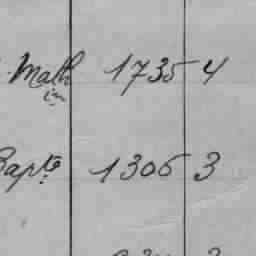 Math 1735 4
im
Bapt: 1305 3